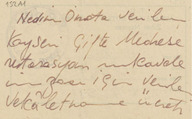 Nedim Onata verilen
Kayseri Çifte Medrese
restorasyon mukavele
için verilen
vekâletname ücreti